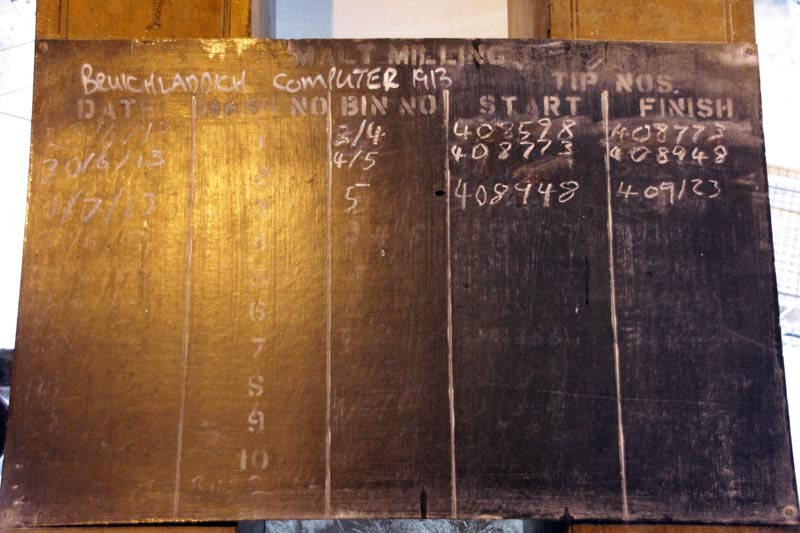 MALT MILLING
BRUICHLADDICH COMPUTER 1913
TIP NOS.
DATE MASH NO BIN NO START FINISH
1 3/4 408598 408773
20/6/13 2 4/5 408773 408948
1/7/13 3 5 408948 409123
4
5
6
7
8
9
10